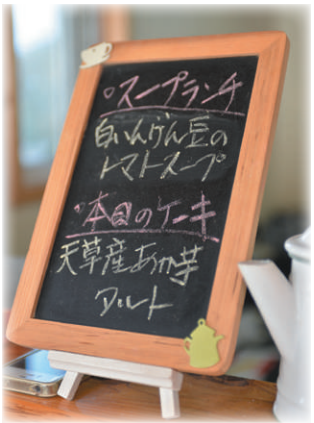 °スープランチ
白いんげん豆の
トマトスープ
°本日のケーキ
天草産あか芋
タルト